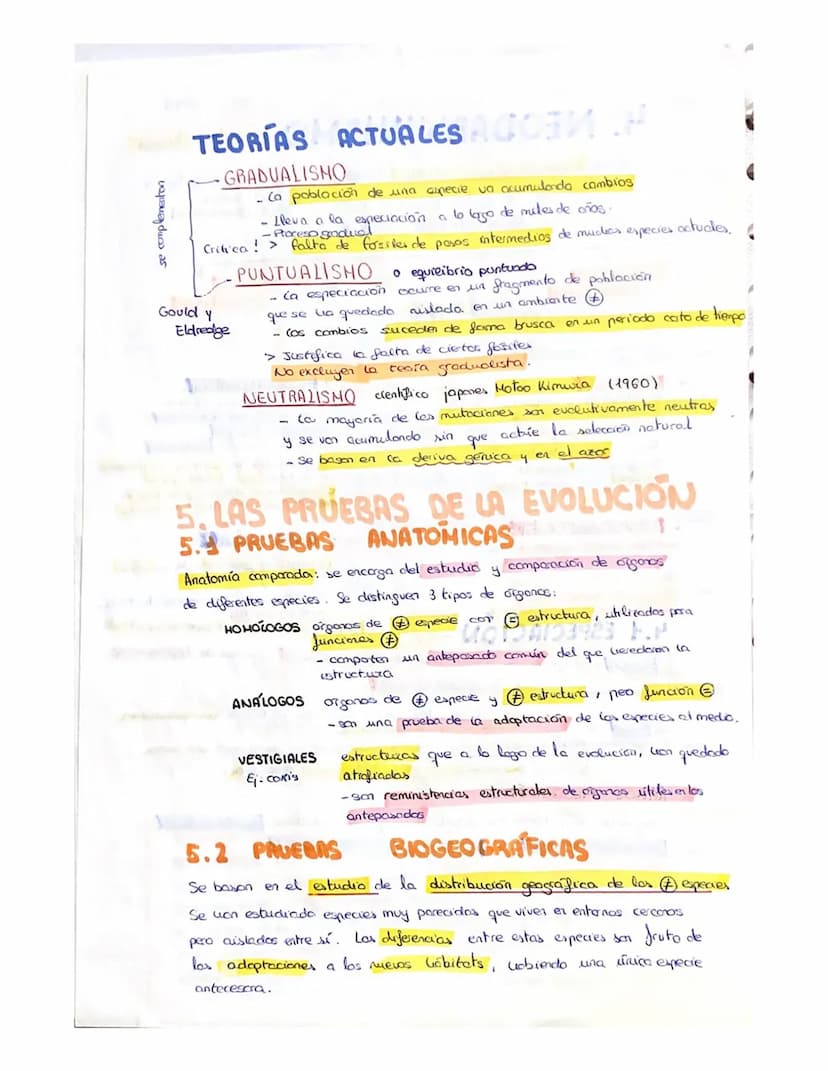 TEORÍAS ACTUALES
GRADUALISMO
- La población de una especie va acumulando cambios
- Lleva a la especiación a lo largo de miles de años.
- Proceso gradual
Crítica! > falta de fósiles de pasos intermedios de muchas especies actuales.
se complementan
PUNTUALISMO o equilibrio puntuado
Gould y
Eldredge
- La especiación ocurre en un fragmento de población
que se ha quedado aislada en un ambiente ≠
- Los cambios suceden de forma brusca en un periodo corto de tiempo
> Justifica la falta de ciertos fósiles
No excluyen la teoría gradualista.
NEUTRALISMO científico japones Motoo Kimura (1960)
- La mayoría de las mutaciones son evolutivamente neutras,
y se van acumulando sin que actúe la selección natural
- Se basan en la deriva génica y en el azar
5. LAS PRUEBAS DE LA EVOLUCIÓN
5.1 PRUEBAS ANATÓMICAS
Anatomía comparada: se encarga del estudio y comparación de órganos
de diferentes especies. Se distinguen 3 tipos de órganos:
HOMÓLOGOS órganos de ≠ especie con = estructura, utilizados para
funciones ≠
- comparten un antepasado común del que heredaron la
estructura
ANÁLOGOS órganos de ≠ especie y ≠ estructura, pero función =
- son una prueba de la adaptación de las especies al medio.
VESTIGIALES estructuras que a lo largo de la evolución, han quedado
Ej. coxis atrofiadas
- son reministencias estructurales de órganos útiles en los
antepasados
5.2 PRUEBAS BIOGEOGRÁFICAS
Se basan en el estudio de la distribución geográfica de las ≠ especies
Se han estudiado especies muy parecidas que viven en entornos cercanos
pero aislados entre sí. Las diferencias entre estas especies son fruto de
las adaptaciones a los nuevos hábitats, habiendo una única especie
antecesora.